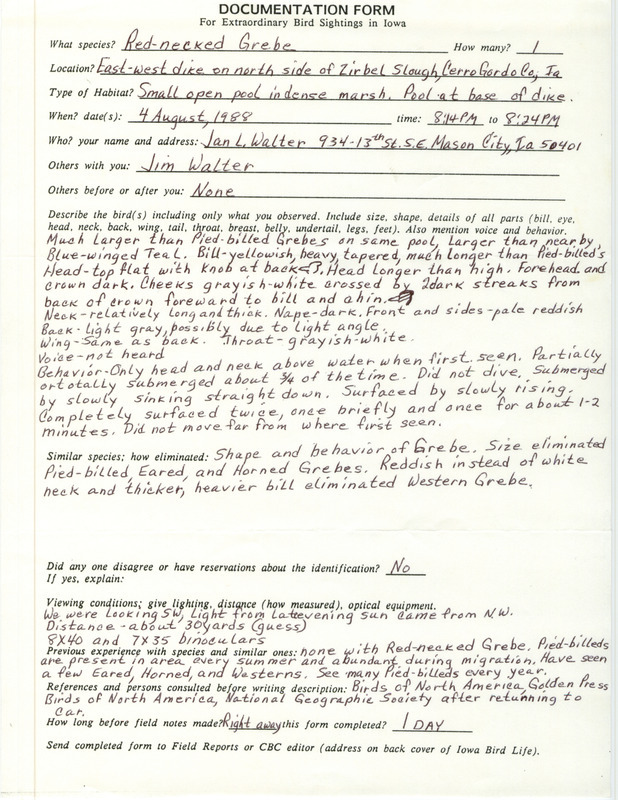 DOCUMENTATION FORM
For Extraordinary Bird Sightings in Iowa
What species? Red-necked Grebe How many? 1
Location? East-west dike on north side of Zirbel Slough, Cerro Gordo Co, Ia
Type of Habitat? Small open pool in dense marsh. Pool at base of dike.
When? date(s): 4 August, 1988 time: 8:14PM to 8:24PM
Who? your name and address: Jan L. Walter 934-13th St. S.E. Mason City, Ia 50401
Others with you: Jim Walter
Others before or after you: None
Describe the bird(s) including only what you observed. Include size, shape, details of all parts (bill, eye,
head, neck, back, wing, tail, throat, breast, belly, undertail, legs, feet). Also mention voice and behavior.
Much larger than Pied-billed Grebes on same pool, Larger than nearby
Blue-winged Teal. Bill-yellowish, heavy, tapered, much longer than Pied-billed's
Head-top flat with knob at back. Head longer than high. Forehead and
crown dark. Cheeks grayish-white crossed by 2 dark streaks from
back of crown foreward to bill and chin.
Neck-relatively long and thick. Nape-dark. Front and sides-pale reddish
Back-light gray, possibly due to light angle.
Wing-Same as back. Throat-grayish-white.
Voice-not heard
Behavior-Only head and neck above water when first seen. Partially
or totally submerged about 3/4 of the time. Did not dive. Submerged
by slowly sinking straight down. Surfaced by slowly rising.
Completely surfaced twice, once briefly and once for about 1-2
minutes. Did not move far from where first seen.
Similar species; how eliminated: Shape and behavior of Grebe. Size eliminated
Pied-billed, Eared, and Horned Grebes. Reddish instead of white
neck and thicker, heavier bill eliminated Western Grebe.
Did any one disagree or have reservations about the identification? No
If yes, explain:
Viewing conditions; give lighting, distance (how measured), optical equipment.
We were looking SW, light from late evening sun came from N.W.
Distance - about 30 yards (guess)
8X40 and 7X35 binoculars
Previous experience with species and similar ones: none with Red-necked Grebe. Pied-billeds
are present in area every summer and abundant during migration. Have seen
a few Eared, Horned, and Westerns. See many Pied-billeds every year.
References and persons consulted before writing description: Birds of North America, Golden Press
Birds of North America, National Geographic Society after returning to
car.
How long before field notes made? Right away this form completed? 1 DAY
Send completed form to Field Reports or CBC editor (address on back cover of Iowa Bird Life).